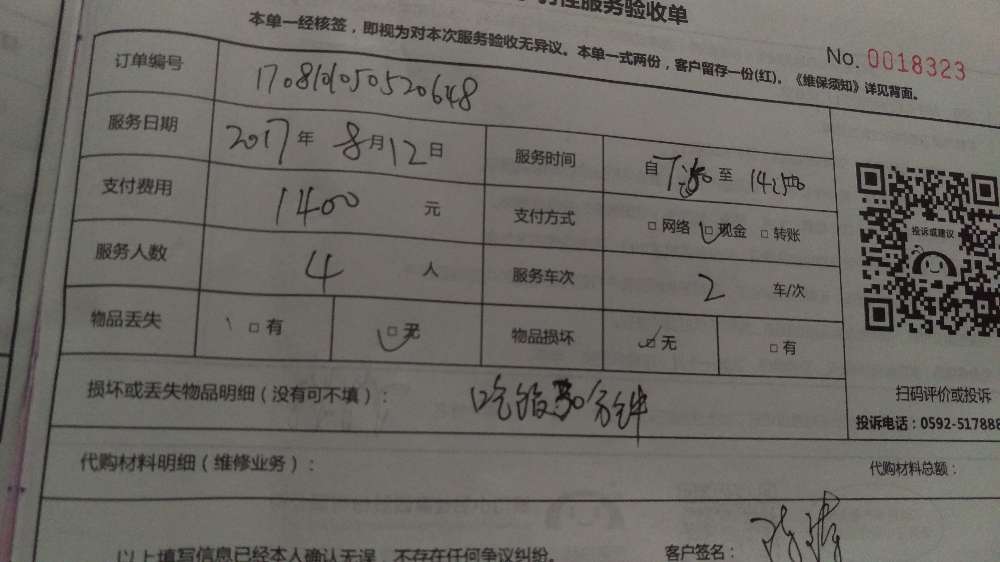 性服务验收单
本单一经核签，即视为对本次服务验收无异议。本单一式两份，客户留存一份(红)。《维保须知》详见背面。
No. 0018323
订单编号
服务日期 2017年8月12日 服务时间 自 至
支付费用 1400 元 支付方式 □网络 □现金 □转账
投诉或建议
服务人数 4 人 服务车次 2 车/次
物品丢失 □有 □无 物品损坏 □无 □有
扫码评价或投诉
损坏或丢失物品明细（没有可不填）： 吃饭30分钟
投诉电话：0592-517888
代购材料明细（维修业务）： 代购材料总额：
以上填写信息已经本人确认无误，不存在任何争议纠纷。 客户签名：